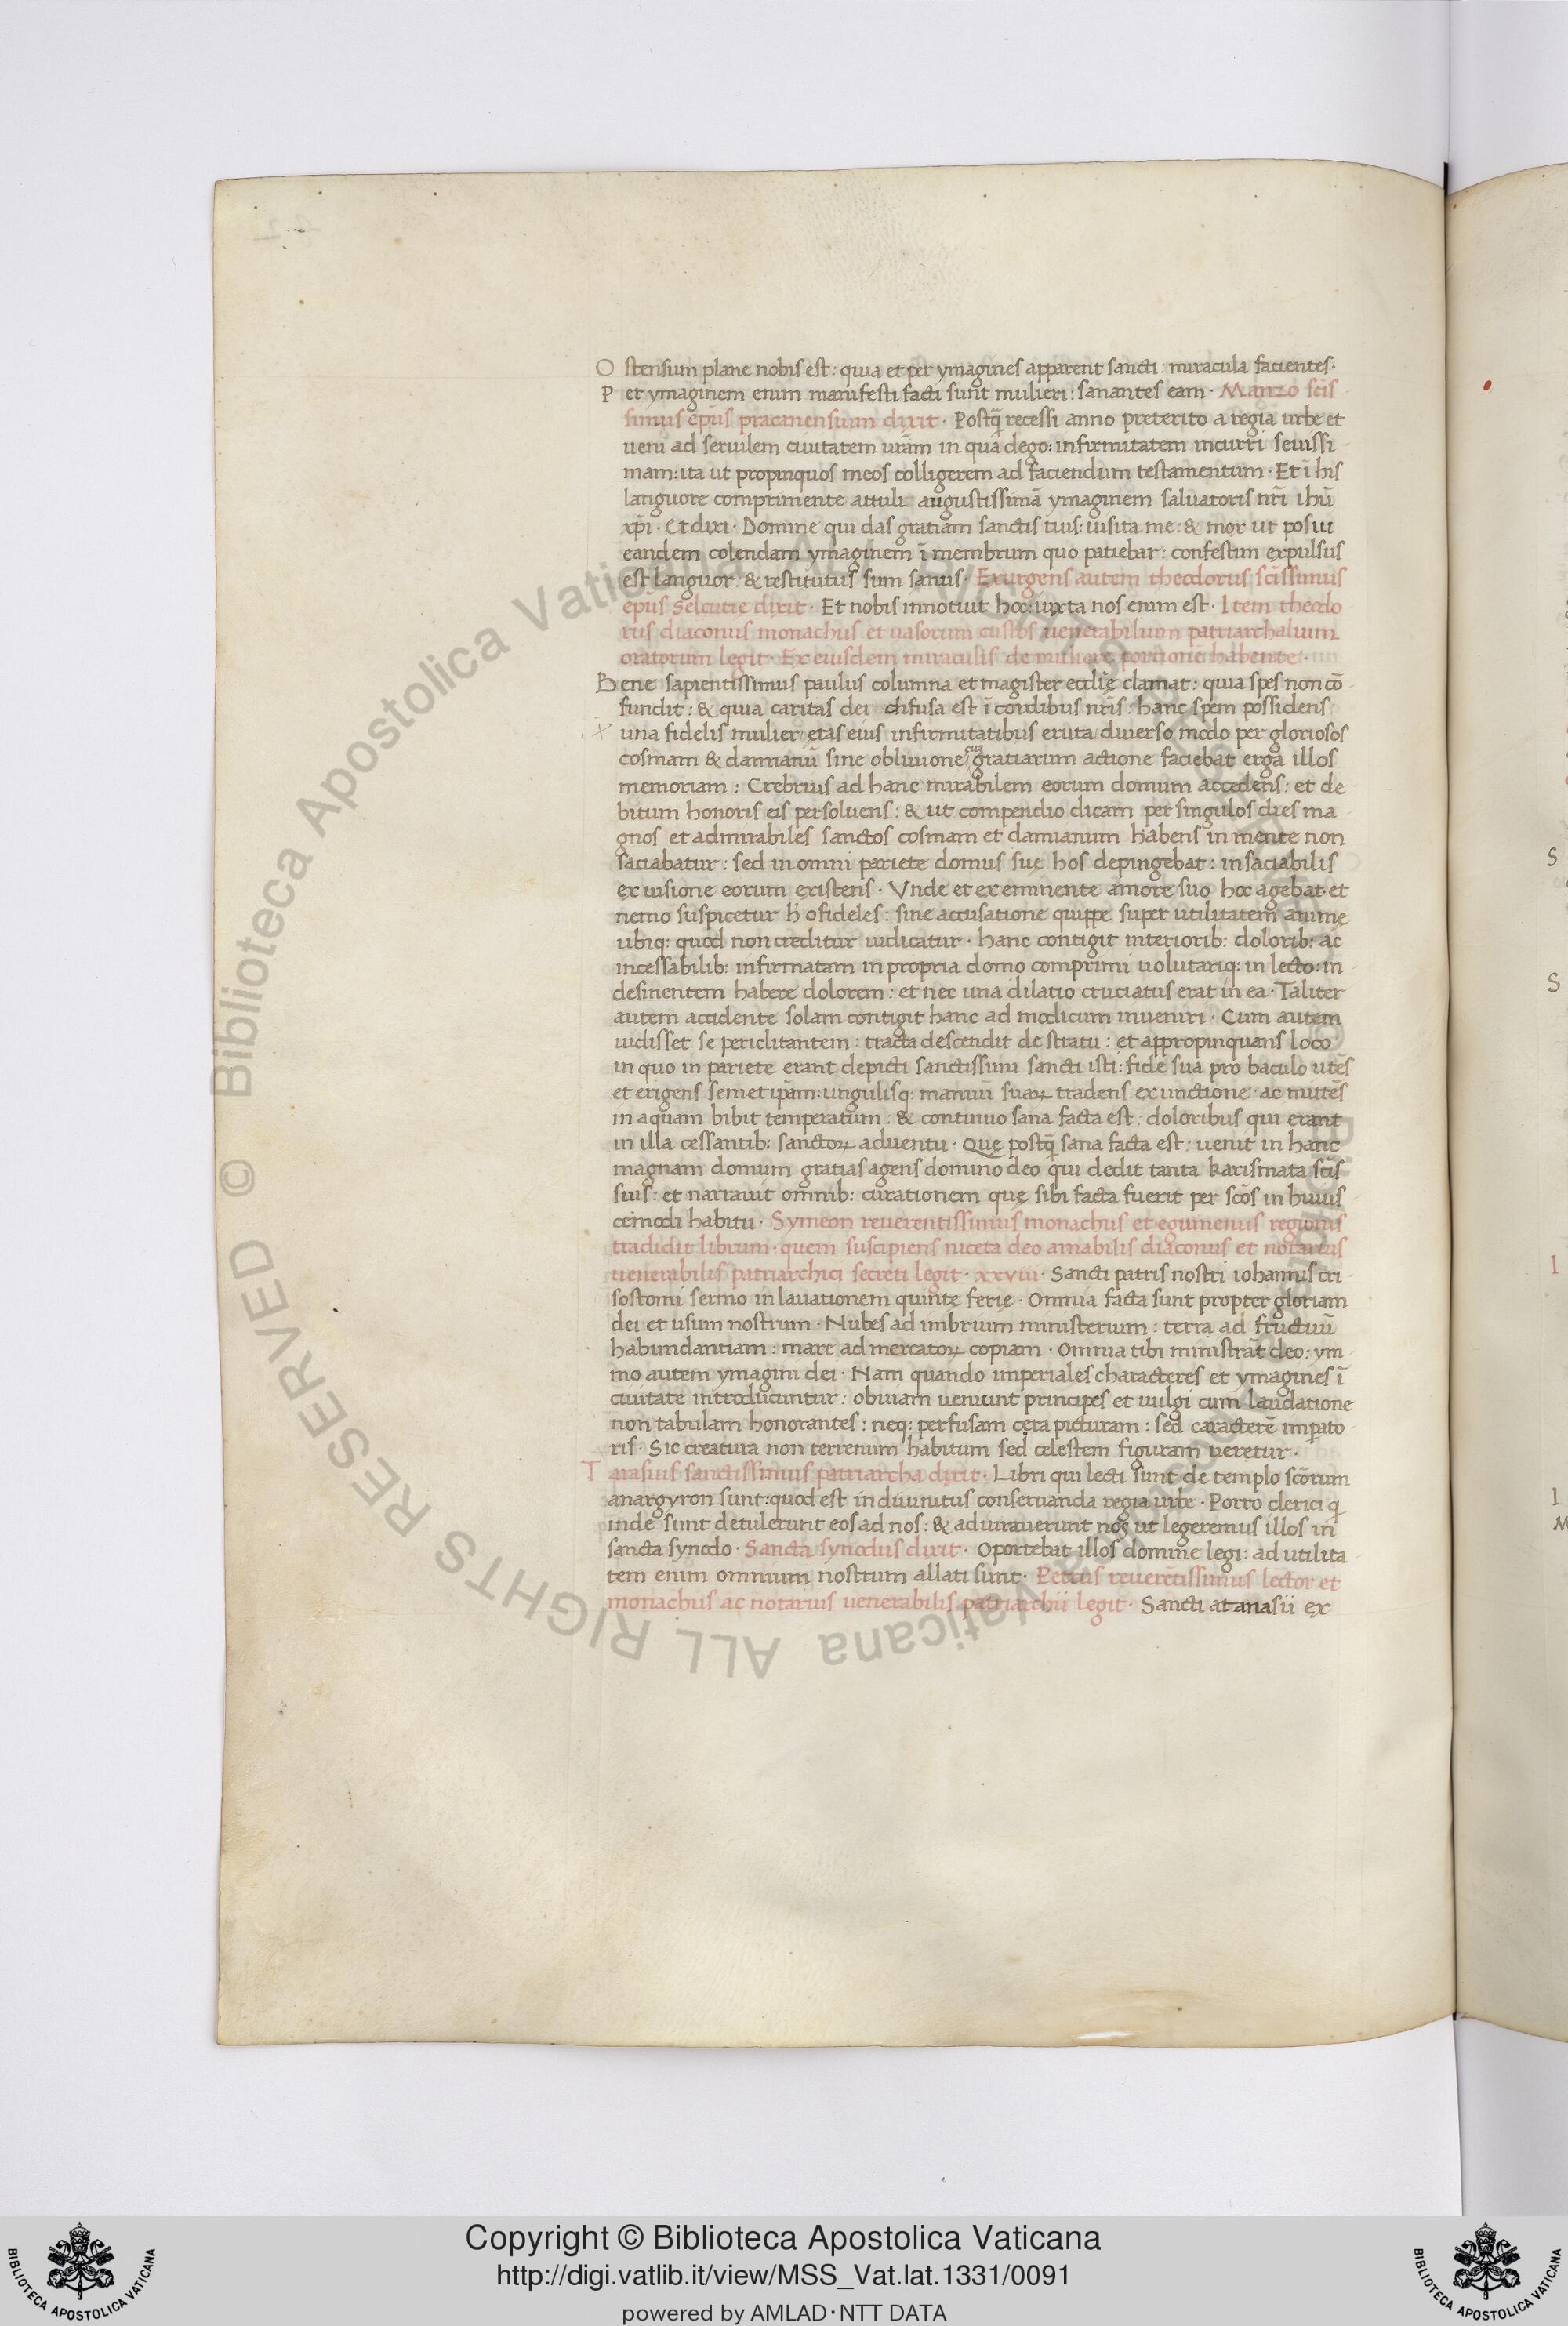 O stensum plane nobis est: quia et per ymagines apparent sancti: miracula facientes·
P et ymaginem enim manifesti facti sunt mulieri: sanantes eam· Manzo scis
simus ep̄us pracanensium dixit· Postq̄ recessi anno preterito a regia urbe et
ueni ad seruilem ciuitatem ur̄am in qua dego: infirmitatem incurri seuissi
mam: ita ut propinquos meos colligerem ad faciendum testamentum· Et ī his
languore comprimente attuli augustissimā ymaginem saluatoris nr̄i ihū
xp̄i· Et dixi· Domine qui das gratiam sanctis tuis: uisita me: & mox ut posui
eandem colendam ymaginem ī membrum quo patiebar: confestim expulsus
est languor: & restitutus sum sanus· Exurgens autem theodorus sc̄issimus
ep̄us selcutie dixit· Et nobis innotuit hoc: iuxta nos enim est· Item theodo
rus diaconus monachus et uasorum custos uenerabilium patriarchalium
oratorum legit· Ex eiusdem miraculis de muliere portionē habente·
B ene sapientissimus paulus columna et magister eccl̄ię clamat: quia spes non cō
fundit: & quia caritas dei diffusa est ī cordibus nr̄is: hanc spem possidens
una fidelis mulier etas eius infirmitatibus eruta diuerso modo per gloriosos
cosmam & damianū sine obliuione gratiarum actione faciebat erga illos
memoriam: Crebrius ad hanc mirabilem eorum domum accedens: et de
bitum honoris eis persoluens: & ut compendio dicam per singulos dies ma
gnos et admirabiles sanctos cosmam et damianum habens in mente non
saciabatur: sed in omni pariete domus suę hos depingebat: insaciabilis
ex uisione eorum existens· Vnde et ex eminente amore suo hoc agebat· et
nemo suspicetur h̄ o fideles: sine accusatione quippe super utilitatem animę
ubiq: quod non creditur iudicatur· hanc contigit interiorib: dolorib: ac
incessabilib: infirmatam in propria domo comprimi uolutariq: in lecto: in
desinentem habere dolorem: et nec una dilatio cruciatus erat in ea· Taliter
autem accidente solam contigit hanc ad modicum inueniri· Cum autem
uidisset se periclitantem: tracta descendit de stratu: et appropinquans loco
in quo in pariete erant depicti sanctissimi sancti isti: fide sua pro baculo utēs
et erigens semetip̄am: ungulisq: manuū suaꝝ tradens ex unctione· ac mittēs
in aquam bibit temperatum: & continuo sana facta est: doloribus qui erant
in illa cessantib: sanctoꝝ aduentu· Quę postq̄ sana facta est: uenit in hanc
magnam domum gratias agens domino deo qui dedit tanta karismata sc̄is
suis: et narrauit omnib: curationem que sibi facta fuerit per sc̄os in huius
cemodi habitu· Symeon reuerentissimus monachus et egumenus regionis
tradidit librum· quem suscipiens niceta deo amabilis diaconus et notarius
uenerabilis patriarchici secreti legit· xxviii· Sancti patris nostri iohannis cri
sostomi sermo in lauationem quinte ferię· Omnia facta sunt propter gloriam
dei et usum nostrum· Nubes ad imbrium ministerium: terra ad fructuū
habundantiam: mare ad mercatoꝝ copiam· Omnia tibi ministrāt deo: ym
mo autem ymagini dei· Nam quando imperiales characteres et ymagines ī
ciuitate introducuntur: obuiam ueniunt principes et uulgi cum laudatione
non tabulam honorantes: neq: perfusam cera picturam: sed caracterē imp̄ato
ris· Sic creatura non terrenum habitum sed celestem figuram ueretur·
T arasius sanctissimus patriarcha dixit· Libri qui lecti sunt de templo sc̄orum
anargyron sunt: quod est in diuinitus conseruanda regia urbe· Porro clerici q̄
inde sunt detulerunt eos ad nos: & adiurauerunt nos ut legeremus illos in
sancta synodo· Sancta synodus dixit· Oportebat illos domine legi: ad utilita
tem enim omnium nostrum allati sunt· Petrus reuerētissimus lector et
monachus ac notarius uenerabilis patriarchii legit· Sancti atanasii ex
S
S
I
I
M
© Biblioteca Apostolica Vaticana ALL RIGHTS RESERVED
Copyright © Biblioteca Apostolica Vaticana
http://digi.vatlib.it/view/MSS_Vat.lat.1331/0091
powered by AMLAD·NTT DATA
BIBLIOTECA APOSTOLICA VATICANA
BIBLIOTECA APOSTOLICA VATICANA